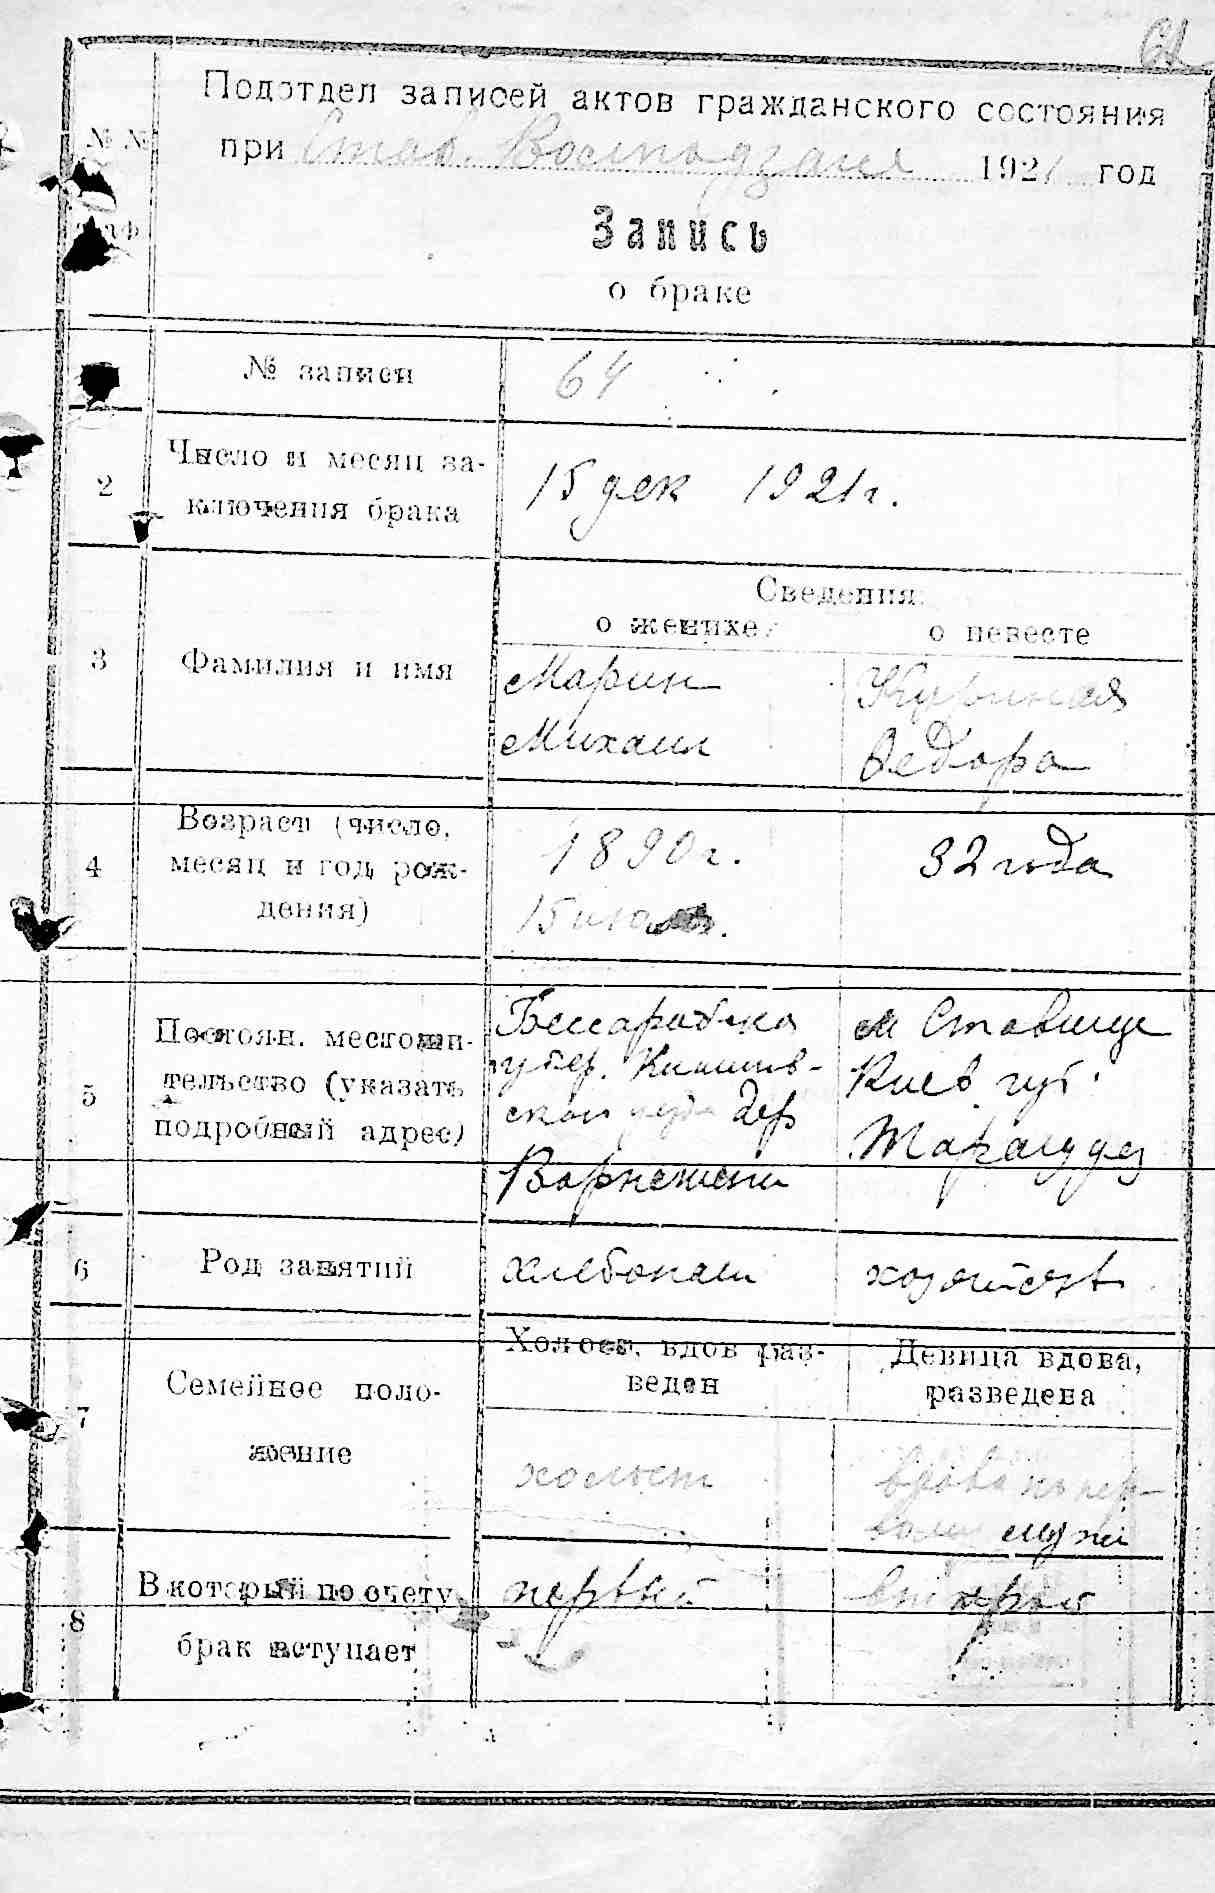 61
Подотдел записей актов гражданского состояния
№ №
при Став. 1921 год
граф
Запись
о браке
№ записи 64
2 Число и месяц за-
ключения брака
15 дек 1921 г.
Сведения
о женихе о невесте
3 Фамилия и имя
Марин
Михаил
Федора
4 Возраст (число,
месяц и год рож-
дения)
1890 г.
15
32 года
5 Постоян. местожи-
тельство (указать
подробный адрес)
Бессарабска
губер. Кишинв-
ской уезд дер
Варнешени
м Ставище
Киев. губ.
6 Род занятий хлебопаш хозяйств
7 Семейное поло-
жение
Холост, вдов раз-
веден
Девица вдова,
разведена
холост
вдова по пер-
вом мужи
8 В который по счету
брак вступает
первый
второй